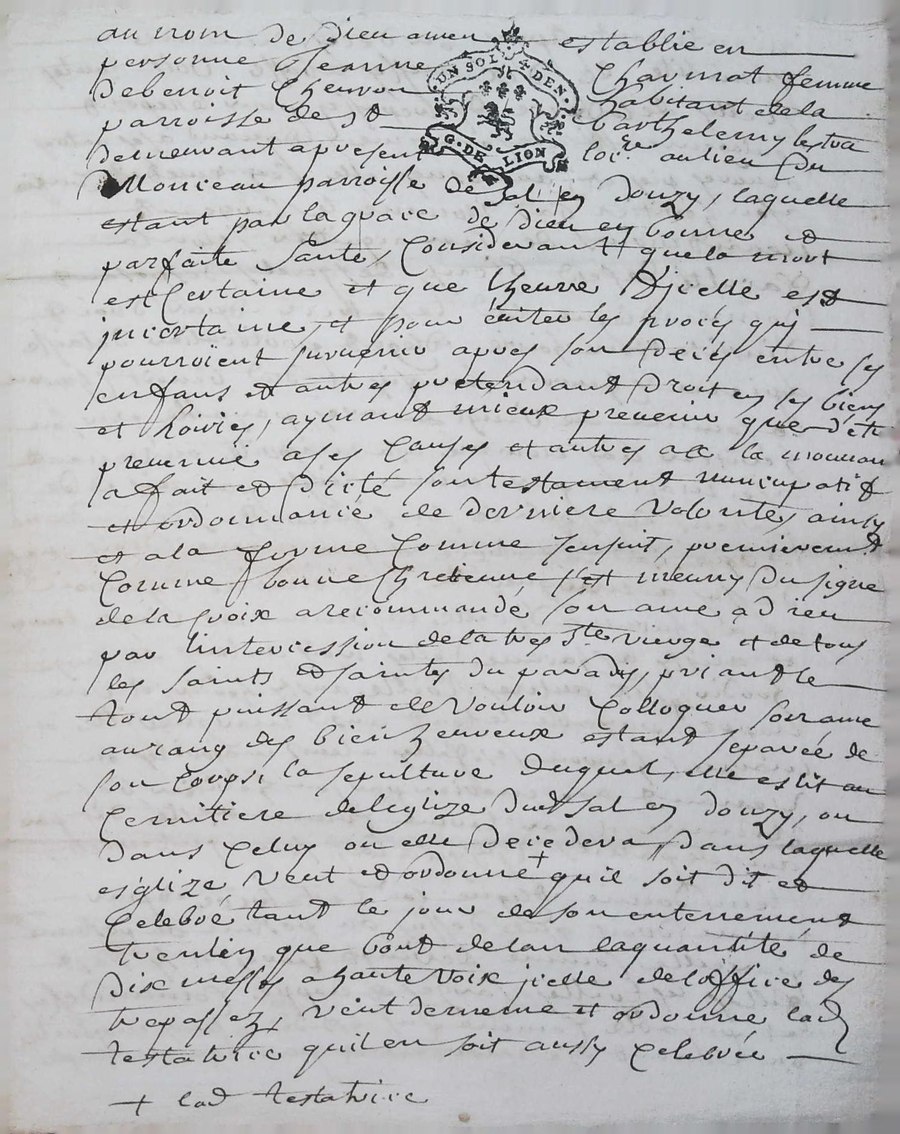 au nom de Dieu amen establie en
personne Jeanne Charmat femme
de benoit Chervon habitant de la
parroisse de St Barthelemy lestra
demeurant apresent loc.re au lieu du
Monceau parroisse de Sal en donzy, laquelle
estant par la grace de Dieu en bonne et
parfaite Santé, Considerant que la mort
est Certaine et que lheure d'jcelle est
jncertaine, et pour éuiter les proces quj
pourroient suruenir apres son Decés entre ses
enfans et autres pretendant Droit en ses biens
et hoiries, aymant mieux preuenir que d'etre
preuenue a ses Causes et autres a ce la mouuan
a fait et Dicté son testament nuncupatif
et ordonnance de derniere volonté, ainsy
et a la forme Comme sensuit, premierement
Comme bonne Chretienne s'est meuny du signe
de la Croix a recommandé son ame a dieu
par lintercession de la tres Ste vierge et de tous
les saints et saintes du paradis, priant le
tout puissant de vouloir Colloquer son ame
au rang des bienheureux estant separée de
son Corps, la sepulture duquel, elle eslit au
Cemitiere de leglize dud Sal en donzy, ou
dans Celuy ou elle Decedera, dans laquelle
esglize, veut et ordonne + qu'il soit dit et
Celebré tant le jour de son enterrement
que bout de lan la quantité de
Dix messes a haute voix jcelle de l'office des
trepassez, veut de meme et ordonne lad
testatrice quil en soit aussy Celebrée
+ lad testatrice
UN SOL 4 DEN.
G. DE LION